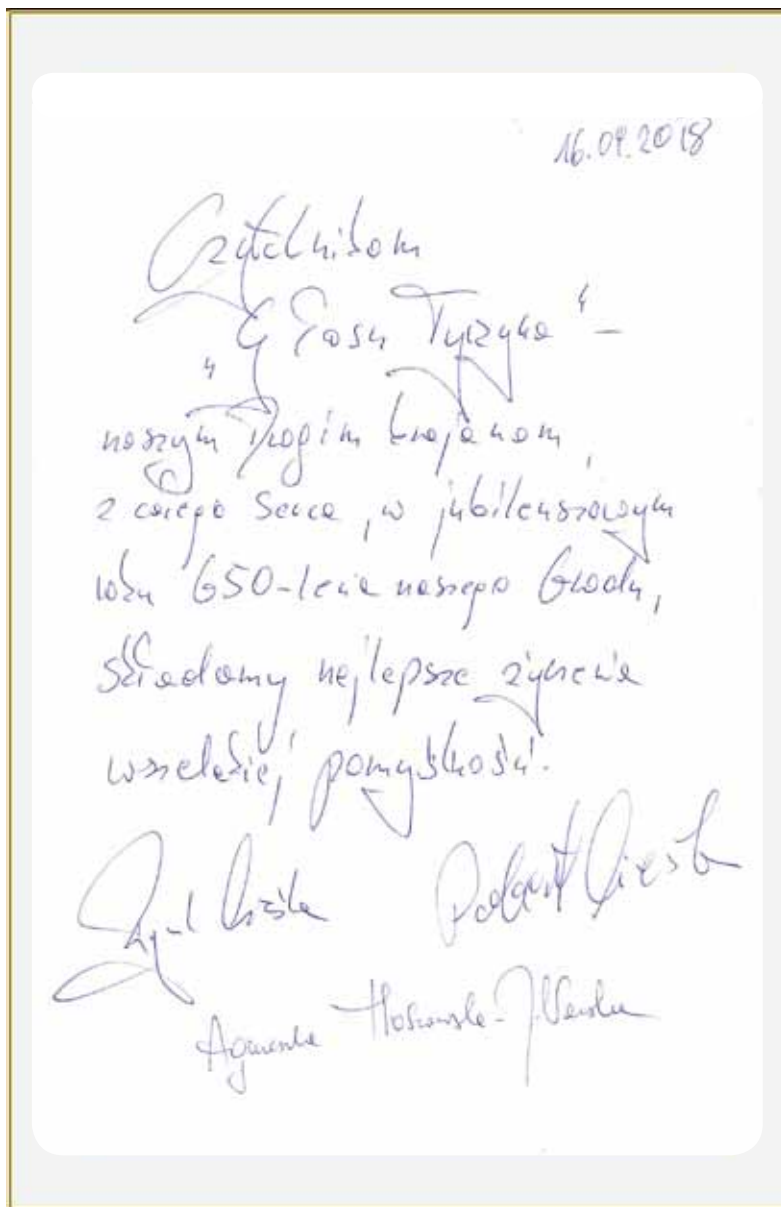 16.09.2018
Czytelnikom
"Głosu Tyczyna" –
naszym Drogim krajanom,
z całego serca, w jubileuszowym
roku 650-lecia naszego Grodu,
składamy najlepsze życzenia
wszelakiej pomyślności.
Robert
Agnieszka